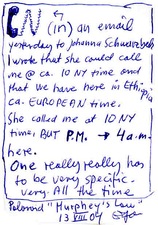 (in) an email
yesterday to Johanna Schwarzbeck
I wrote that she could call
me @ ca. 10 NY time and
that we have here in Ethiopia
ca. EUROPEAN time.
She called me at 10 NY
time, BUT P.M. → 4 a.m.
here.
One really really has
to be very specific.
very. All the time
Polaroid "Murphey's Law"
13 VIII 04